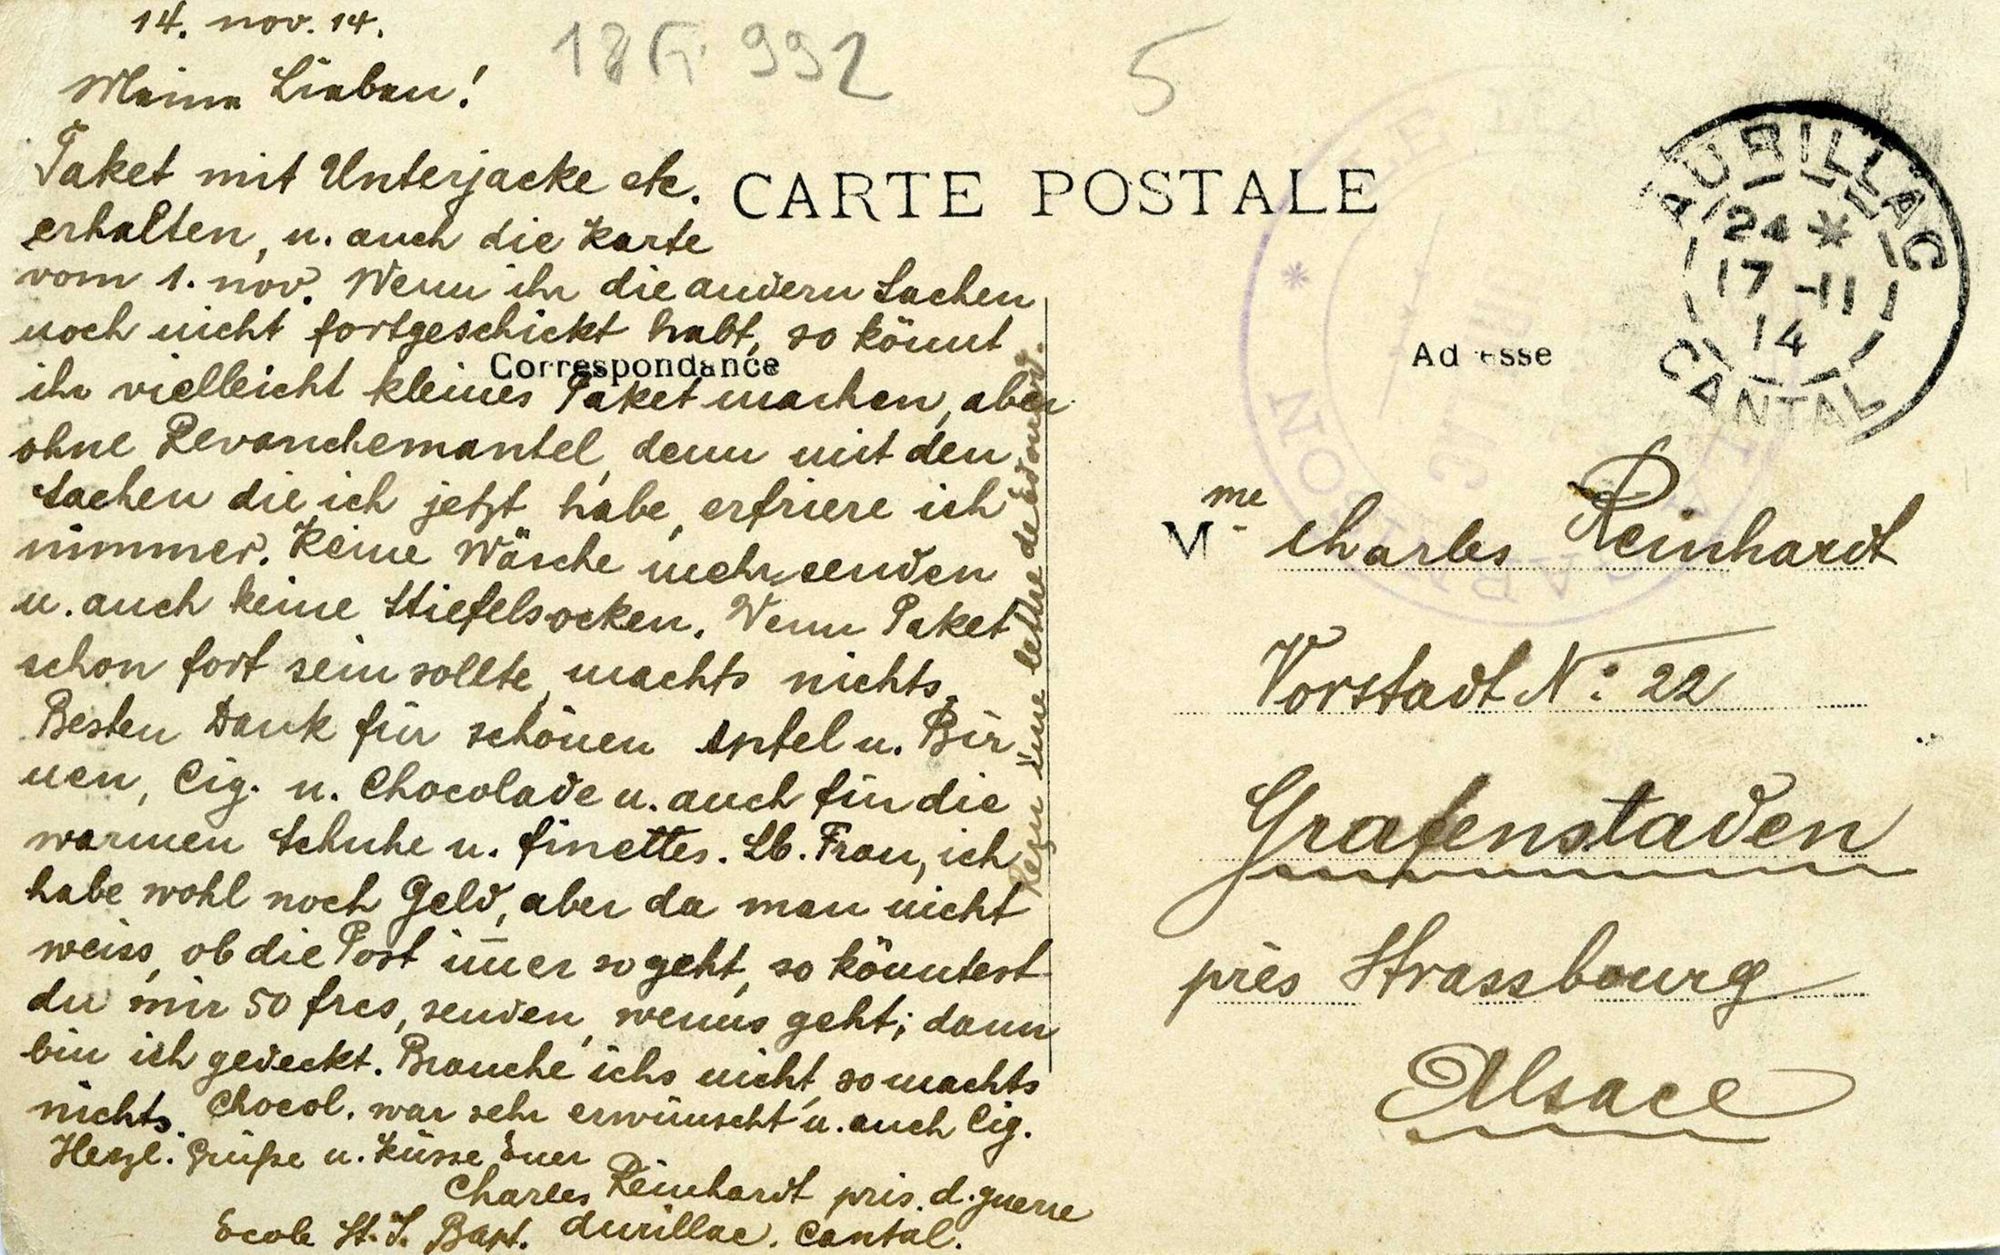 14. nov. 14.
18 Fi 992
5
Meine Lieben!
Paket mit Unterjacke etc.
erhalten, u. auch die Karte
vom 1. nov. Wenn ihr die andern Sachen
noch nicht fortgeschickt habt, so könnt
ihr vielleicht kleines Paket machen, aber
ohne Revanchemantel, denn mit den
Sachen die ich jetzt habe, erfriere ich
nimmer. Keine Wäsche mehr senden
u. auch keine Stiefelsocken. Wenn Paket
schon fort sein sollte, machts nichts.
Besten Dank für schönen Apfel u. Bir-
nen, Cig. u. Chocolade u. auch für die
warmen Schuhe u. finettes. Lb. Frau, ich
habe wohl noch Geld, aber da man nicht
weiss, ob die Post im̄er so geht, so könntest
du mir 50 frcs, senden, wenns geht; dann
bin ich gedeckt. Brauche ichs nicht, so machts
nichts. Chocol. war sehr erwünscht u. auch Cig.
Herzl. Grüße u. Küsse Euer
Charles Reinhardt pris. d. guerre
Ecole St. J. Bapt. Aurillac. Cantal.
Reçu une lettre de Edouard.
CARTE POSTALE
Correspondance
Adresse
AURILLAC
24 *
17 -11
14
CANTAL
Mme Charles Reinhardt
Vorstadt No: 22
Grafenstaden
près Strassbourg
Alsace